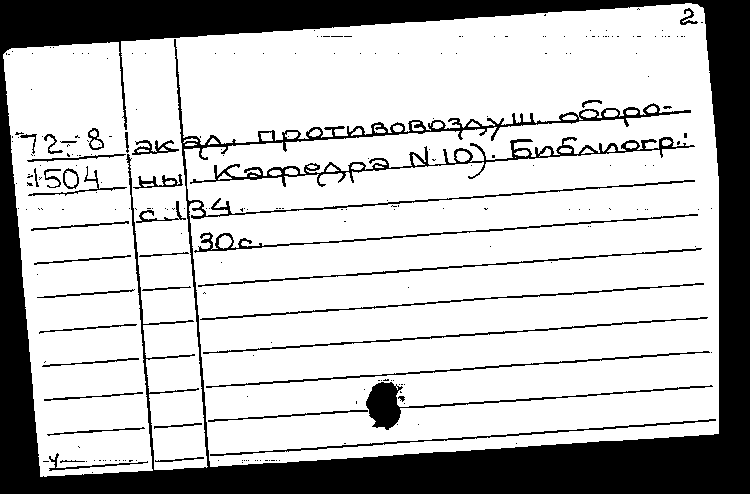 2
72-8 акад. противовоздуш. оборо-
1504 ны. Кафедра N 10). Библиогр.:
с. 134.
30с.
ч